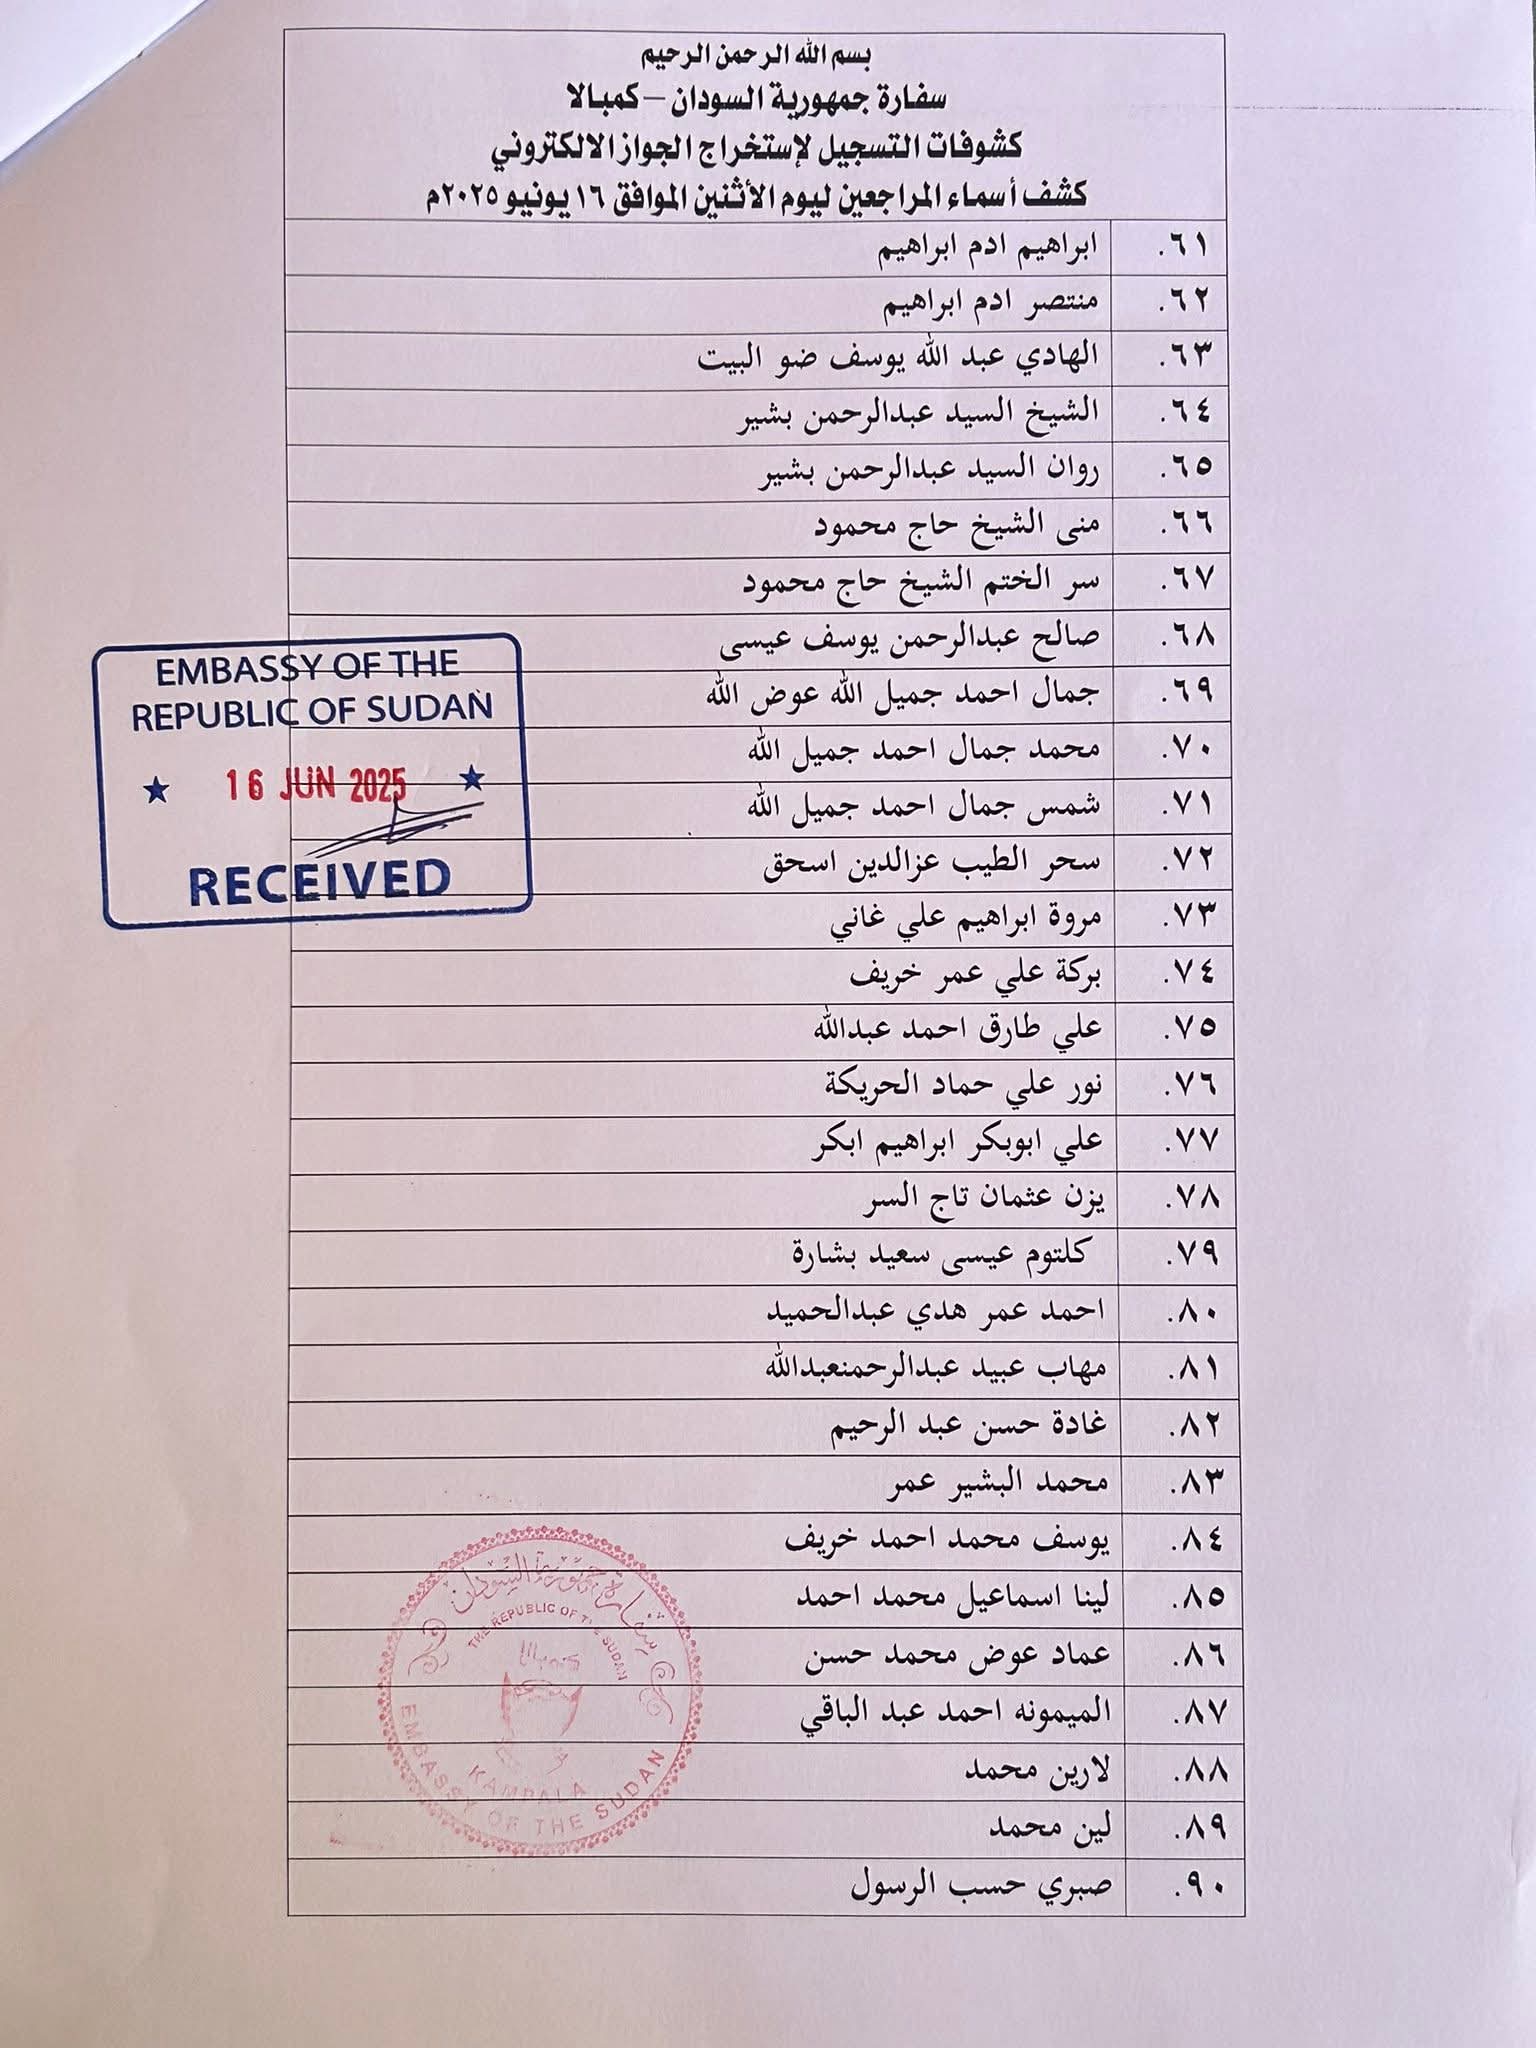 بسم الله الرحمن الرحيم
سفارة جمهورية السودان – كمبالا
كشوفات التسجيل لإستخراج الجواز الالكتروني
كشف أسماء المراجعين ليوم الأثنين الموافق ١٦ يونيو ٢٠٢٥م
٦١. ابراهيم ادم ابراهيم
٦٢. منتصر ادم ابراهيم
٦٣. الهادي عبد الله يوسف ضو البيت
٦٤. الشيخ السيد عبدالرحمن بشير
٦٥. روان السيد عبدالرحمن بشير
٦٦. منى الشيخ حاج محمود
٦٧. سر الختم الشيخ حاج محمود
٦٨. صالح عبدالرحمن يوسف عيسى
٦٩. جمال احمد جميل الله عوض الله
٧٠. محمد جمال احمد جميل الله
٧١. شمس جمال احمد جميل الله
٧٢. سحر الطيب عزالدين اسحق
٧٣. مروة ابراهيم علي غاني
٧٤. بركة علي عمر خريف
٧٥. علي طارق احمد عبدالله
٧٦. نور علي حماد الحريكة
٧٧. علي ابوبكر ابراهيم ابكر
٧٨. يزن عثمان تاج السر
٧٩. كلتوم عيسى سعيد بشارة
٨٠. احمد عمر هدي عبدالحميد
٨١. مهاب عبيد عبدالرحمنعبدالله
٨٢. غادة حسن عبد الرحيم
٨٣. محمد البشير عمر
٨٤. يوسف محمد احمد خريف
٨٥. لينا اسماعيل محمد احمد
٨٦. عماد عوض محمد حسن
٨٧. الميمونه احمد عبد الباقي
٨٨. لارين محمد
٨٩. لين محمد
٩٠. صبري حسب الرسول
EMBASSY OF THE
REPUBLIC OF SUDAN
16 JUN 2025
RECEIVED
سفارة جمهورية السودان
THE REPUBLIC OF THE SUDAN
KAMPALA
EMBASSY OF THE SUDAN